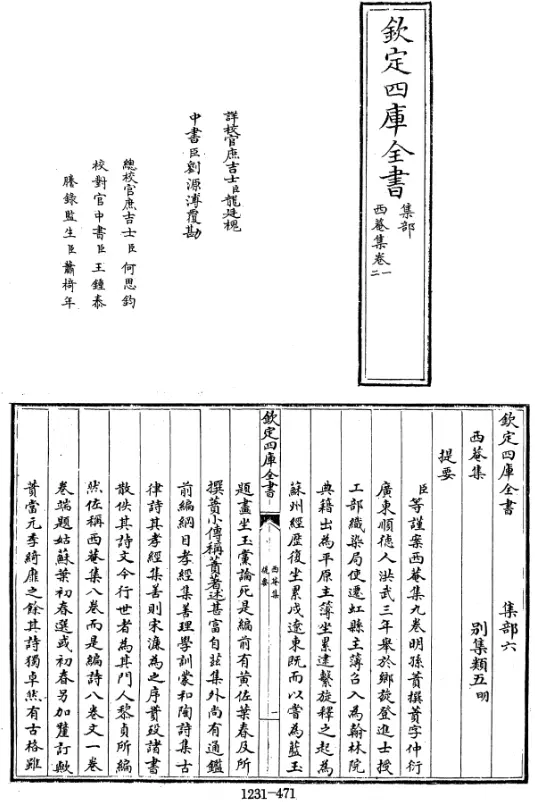 欽定四庫全書
集部
西菴集卷一
二
詳校官庶吉士臣龍廷槐
中書臣劉源溥覆勘
總校官庶吉士臣何思鈞
校對官中書臣王鍾泰
謄錄監生臣蕭椅年
欽定四庫全書 集部六
西菴集 別集類五明
提要
臣等謹案西菴集九卷明孫蕡撰蕡字仲衍
廣東順德人洪武三年舉於鄉旋登進士授
工部織染局使遷虹縣主簿召入為翰林院
典籍出為平原主簿坐累逮繫旋釋之起為
蘇州經歷復坐累戍遼東既而以嘗為藍玉
欽定四庫全書
西菴集
提要
一
題畫坐玉黨論死是編前有黃佐葉春及所
撰蕡小傳稱蕡著述甚富自兹集外尚有通鑑
前編綱目孝經集善理學訓蒙和陶詩集古
律詩其孝經集善則宋濂為之序蕡歿諸書
散佚其詩文今行世者為其門人黎貞所編
然佐稱西菴集八卷而是編詩八卷文一卷
卷端題姑蘇葉初春選或初春另加釐訂歟
蕡當元季綺靡之餘其詩獨卓然有古格雖
1231-471